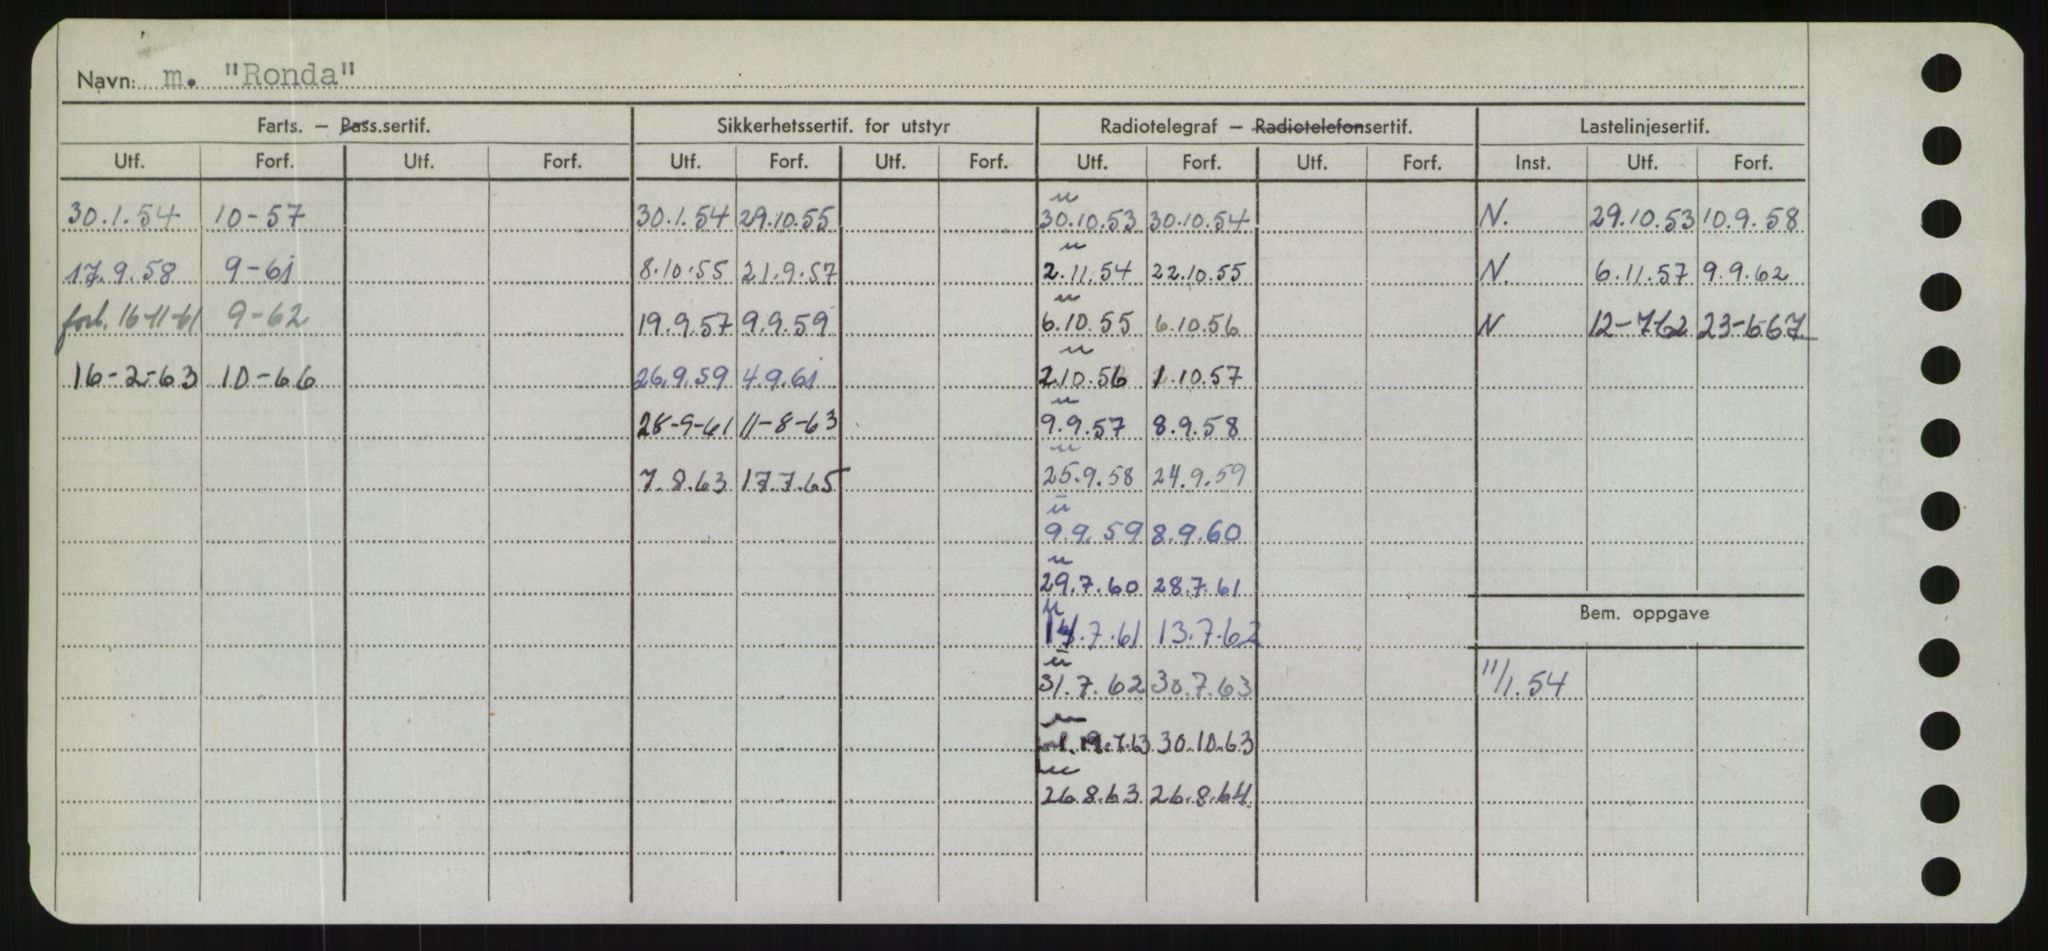 Navn: m. "Ronda"
Farts. — Pass.sertif. Sikkerhetssertif. for utstyr Radiotelegraf — Radiotelefonsertif. Lastelinjesertif.
Utf. Forf. Utf. Forf. Utf. Forf. Utf. Forf. Utf. Forf. Utf. Forf. Inst. Utf. Forf.
u
30.1.54 10-57 30.1.54 29.10.55 30.10.53 30.10.54 N. 29.10.53 10.9.58
u
17.9.58 9-61 8.10.55 21.9.57 2.11.54 22.10.55 N. 6.11.57 9.9.62
u
forl. 16-11-61 9-62 19.9.57 9.9.59 6.10.55 6.10.56 N 12-7-62 23-6-67
u
16-2-63 10-66 26.9.59 4.9.61 2.10.56 1.10.57
u
28-9-61 11-8-63 9.9.57 8.9.58
u
7.8.63 17.7.65 25.9.58 24.9.59
u
9.9.59 8.9.60
u
29.7.60 28.7.61
Bem. oppgave
u
14.7.61 13.7.62
u
31.7.62 30.7.63 11/1.54
u
19.7.63 30.10.63
u
26.8.63 26.8.64